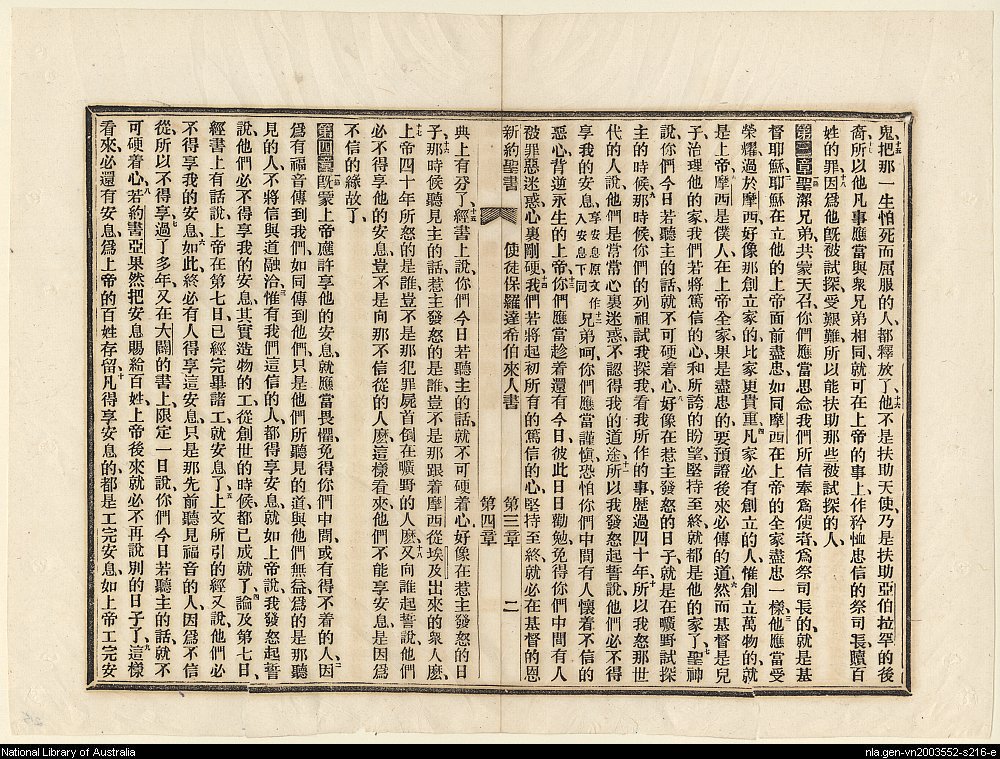 鬼把那一生怕死而屈服的人都釋放了他不是扶助天使乃是扶助亞伯拉罕的後
裔所以他凡事應當與衆兄弟相同就可在上帝的事上作矜恤忠信的祭司長贖百
姓的罪因爲他既被試探受艱難所以能扶助那些被試探的人
第三章聖潔兄弟共蒙天召你們應當思念我們所信奉爲使者爲祭司長的就是基
督耶穌耶穌在立他的上帝面前盡忠如同摩西在上帝的全家盡忠一樣他應當受
榮耀過於摩西好像那創立家的比家更貴重凡家必有創立的人惟創立萬物的就
是上帝摩西是僕人在上帝全家果是盡忠的要預證後來必傳的道然而基督是兒
子治理他的家我們若將篤信的心和所誇的盼望堅持至終就都是他的家了聖神
說你們今日若聽主的話就不可硬着心好像在惹主發怒的日子就是在曠野試探
主的時候那時候你們的列祖試我探我看我所作的事歷過四十年所以我怒那世
代的人說他們是常常心裏迷惑不認得我的道途所以我發怒起誓說他們必不得
享我的安息享安息原文作入安息下同兄弟呵你們應當謹愼恐怕你們中間有人懷着不信的
惡心背逆永生的上帝你們應當趁着還有今日彼此日日勸勉免得你們中間有人
被罪惡迷惑心裏剛硬我們若將起初所有的篤信的心堅持至終就必在基督的恩
新約聖書 使徒保羅達希伯來人書 第三章 第四章 二
典上有分了經書上說你們今日若聽主的話就不可硬着心好像在惹主發怒的日
子那時候聽見主的話惹主發怒的是誰豈不是那跟着摩西從埃及出來的衆人麽
上帝四十年所怒的是誰豈不是那犯罪屍首倒在曠野的人麽又向誰起誓說他們
必不得享他的安息豈不是向那不信從的人麽這樣看來他們不能享安息是因爲
不信的緣故了
第四章既蒙上帝應許享他的安息就應當畏懼免得你們中間或有得不着的人因
爲有福音傳到我們如同傳到他們只是他們所聽見的道與他們無益爲的是那聽
見的人不將信與道融洽惟有我們這信的人都得享安息就如上帝說我發怒起誓
說他們必不得享我的安息其實造物的工從創世的時候都已成就了論及第七日
經書上有話說上帝在第七日已經完畢諸工就安息了上文所引的經又說他們必
不得享我的安息如此終必有人得享這安息只是那先前聽見福音的人因爲不信
從所以不得享過了多年又在大闢的書上限定一日說你們今日若聽主的話就不
可硬着心若約書亞果然把安息賜給百姓上帝後來就必不再說別的日子了這樣
看來必還有安息爲上帝的百姓存留凡得享安息的都是工完安息如上帝工完安
National Library of Australia
nla.gen-vn2003552-s216-e